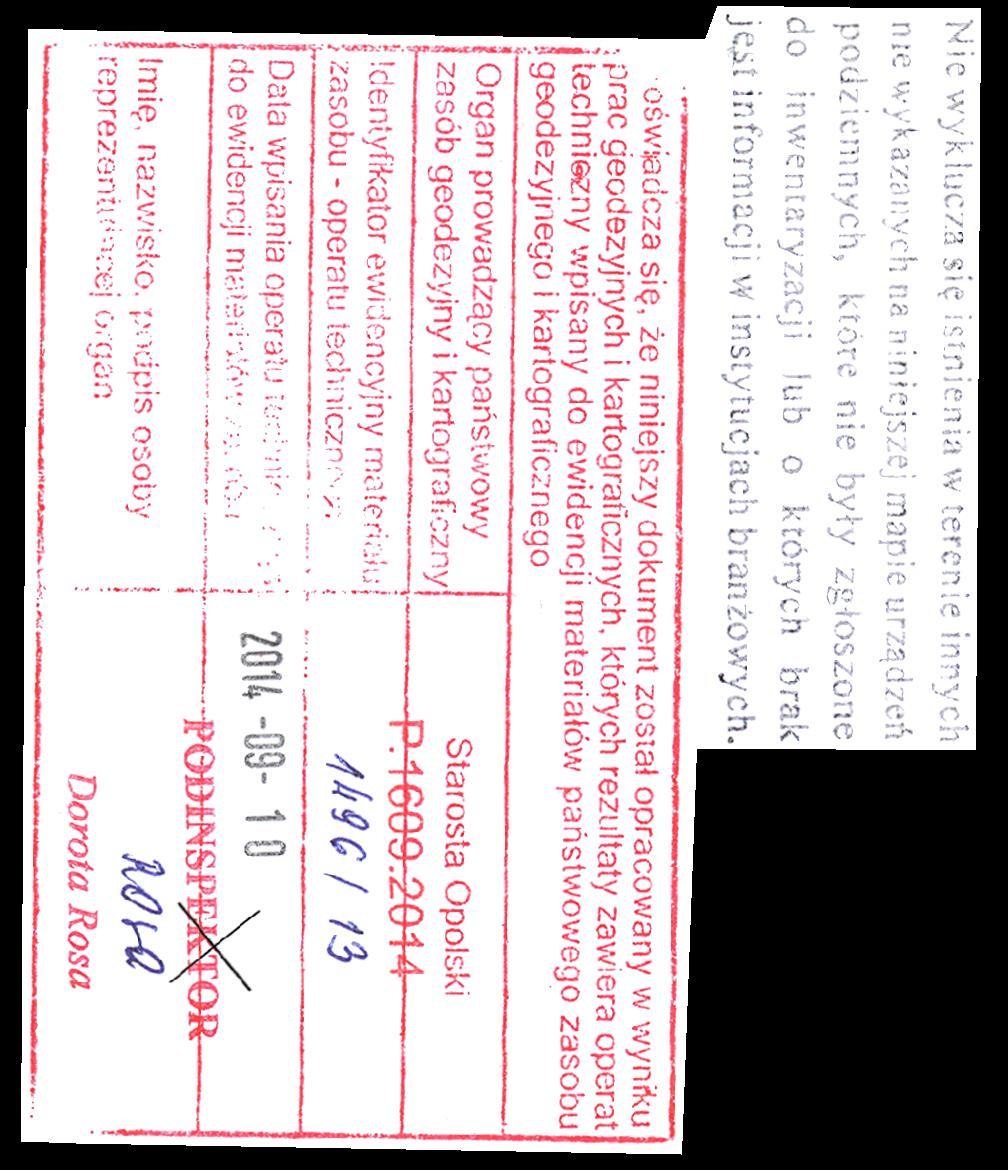 Nie wyklucza się istnienia w terenie innych
nie wykazanych na niniejszej mapie urządzeń
podziemnych, które nie były zgłoszone
do inwentaryzacji lub o których brak
jest informacji w instytucjach branżowych.
oświadcza się, że niniejszy dokument został opracowany w wyniku
prac geodezyjnych i kartograficznych, których rezultaty zawiera operat
techniczny wpisany do ewidencji materiałów państwowego zasobu
geodezyjnego i kartograficznego
Organ prowadzący państwowy
zasób geodezyjny i kartograficzny
Starosta Opolski
Identyfikator ewidencyjny materiału
zasobu - operatu techniczn
P.1609.2014
1496 / 13
Data wpisania operatu
do ewidencji materiałów
2014 -09- 10
Imię, nazwisko, podpis osoby
reprezentującej organ
PODINSPEKTOR
Rosa
Dorota Rosa